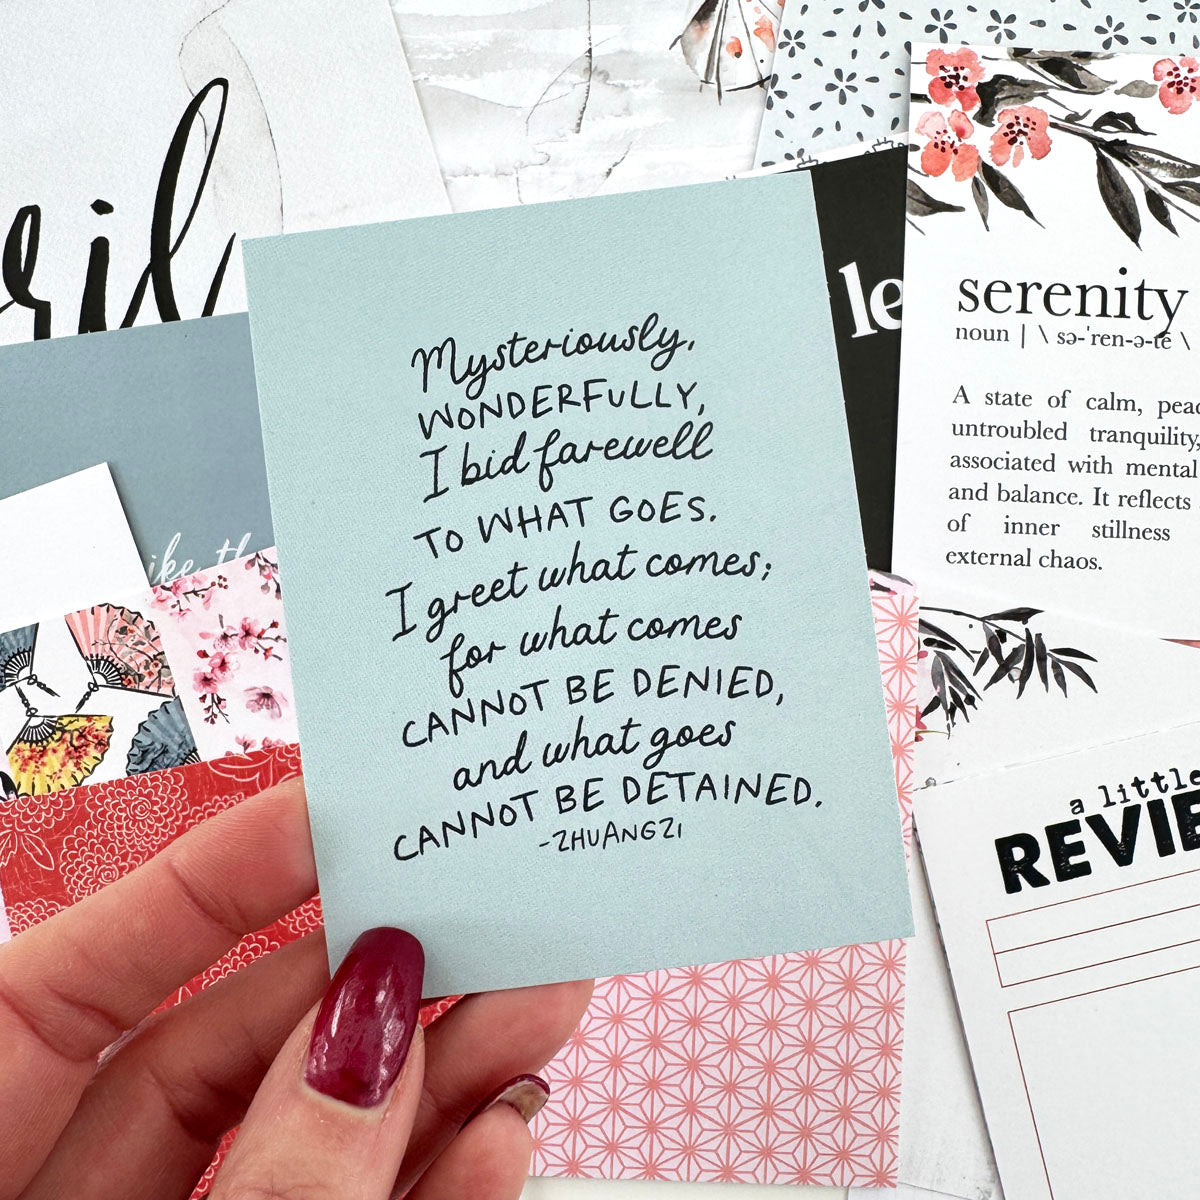 Mysteriously,
WONDERFULLY,
I bid farewell
TO WHAT GOES.
I greet what comes;
for what comes
CANNOT BE DENIED,
and what goes
CANNOT BE DETAINED.
-ZHUANGZI
ril
le
serenity
noun | \ sə-ˈren-ə-tē \
A state of calm, peac
untroubled tranquility,
associated with mental
and balance. It reflects
of inner stillness
external chaos.
ike th
a little
REVIE